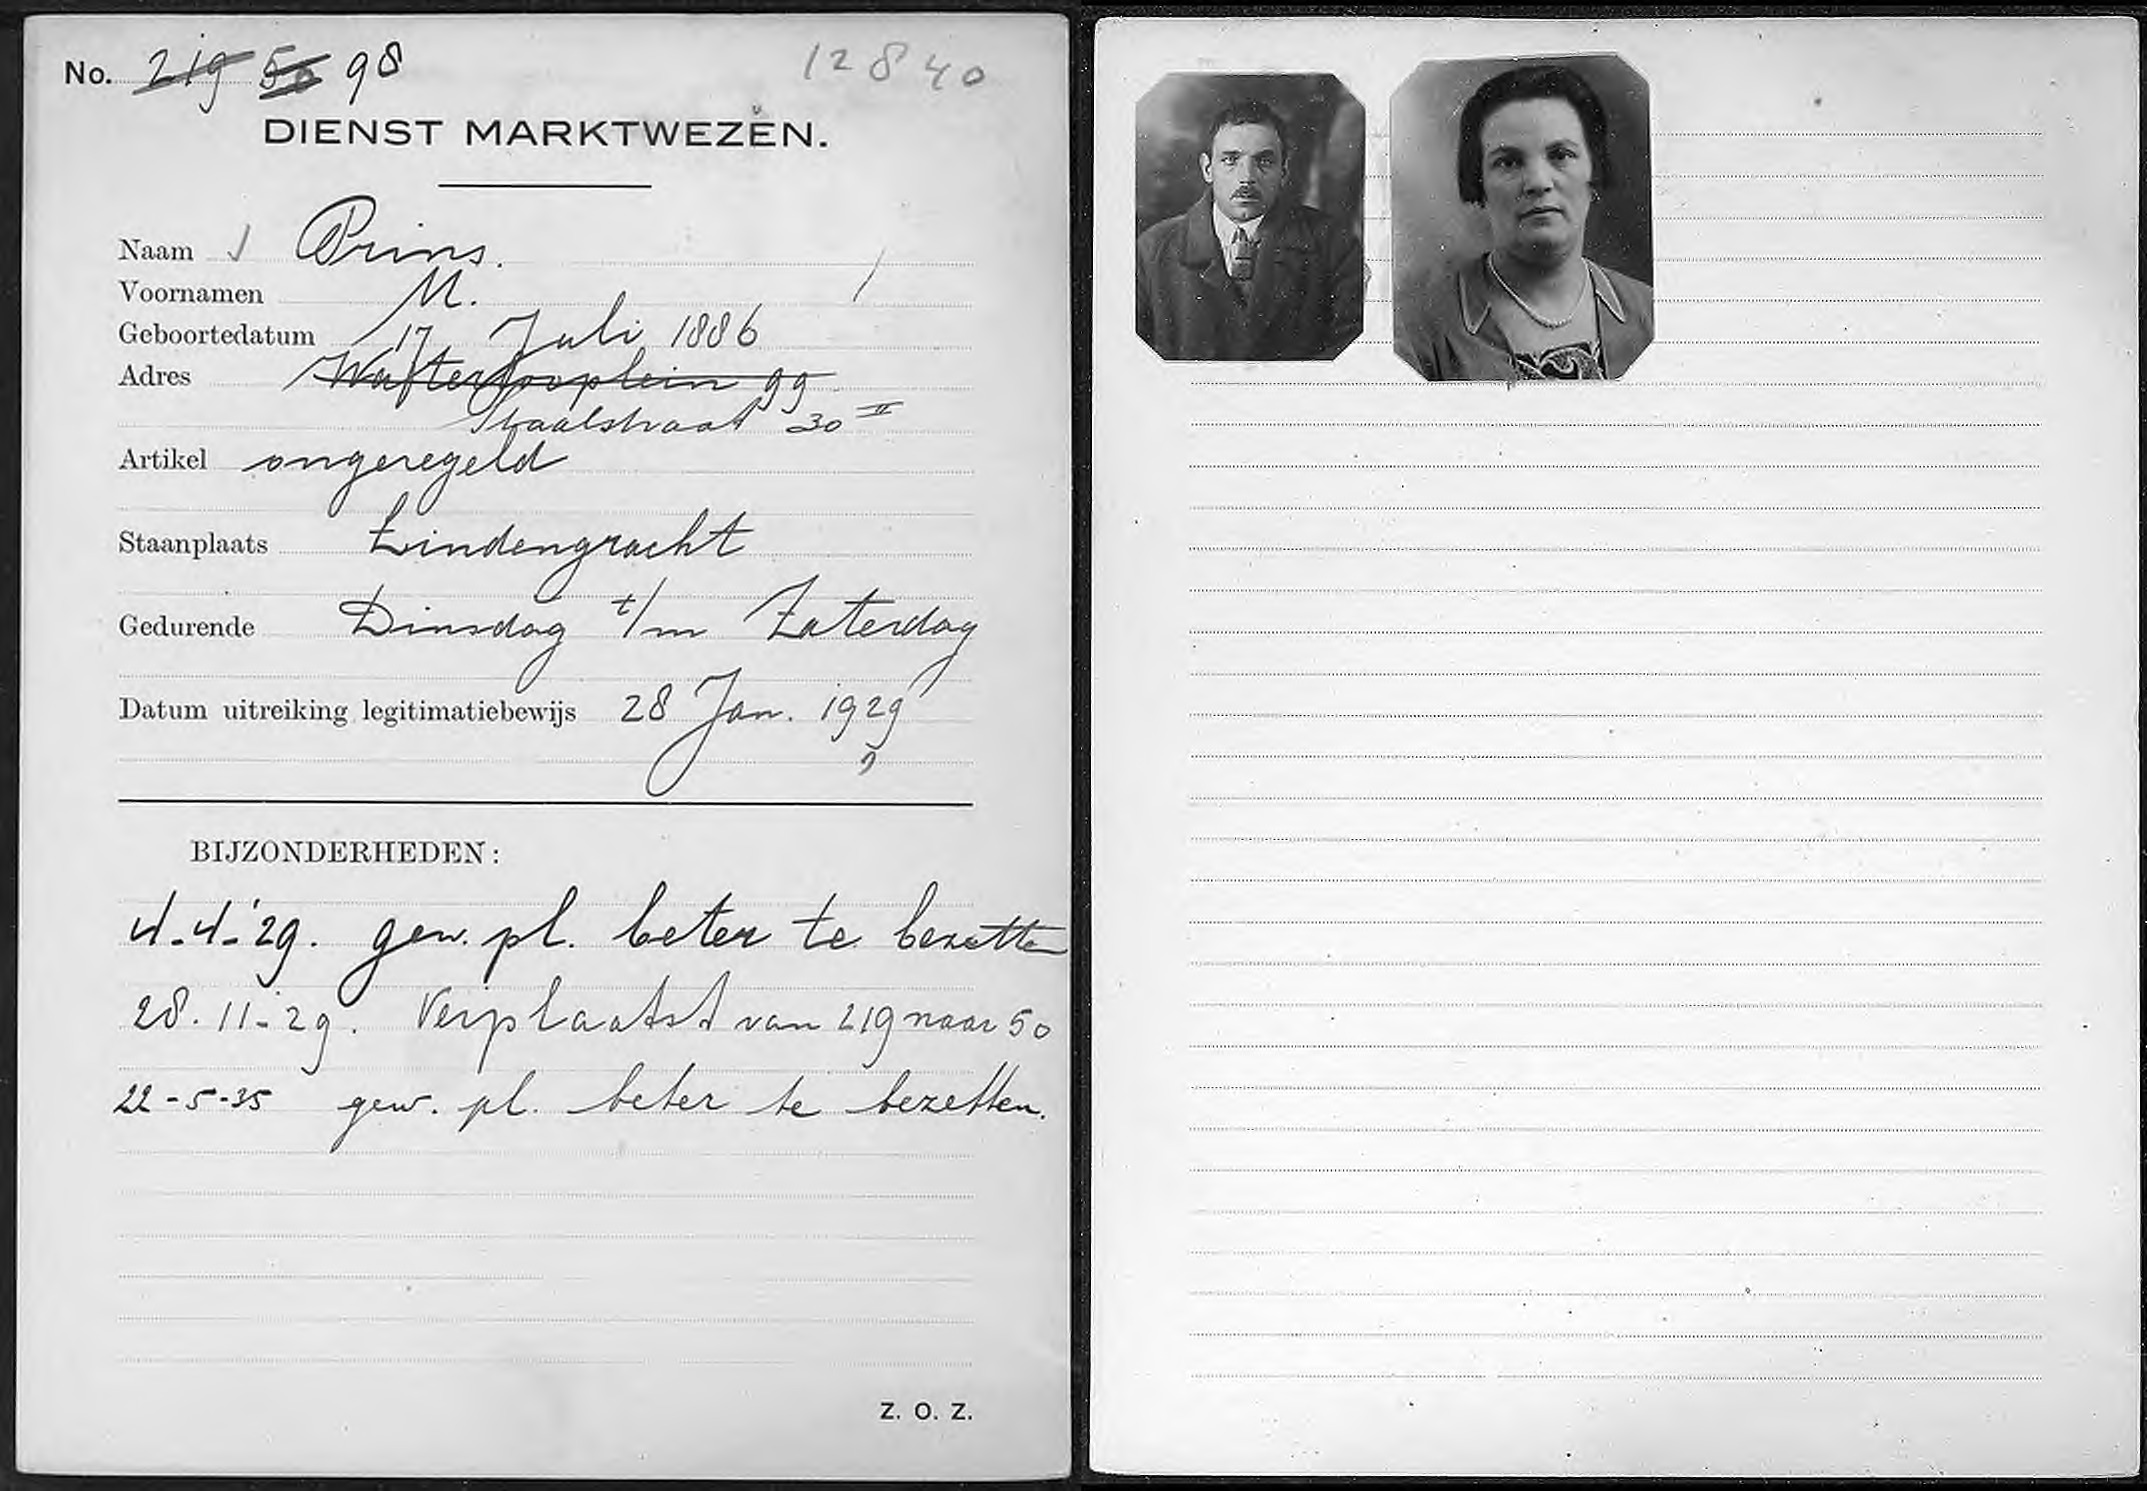 No. 219 50 98
12840
DIENST MARKTWEZEN.
Naam Prins.
Voornamen M.
Geboortedatum 17 Juli 1886
Adres Waterlooplein 99
Staalstraat 30 II
Artikel ongeregeld
Staanplaats Lindengracht
Gedurende Dinsdag t/m Zaterdag
Datum uitreiking legitimatiebewijs 28 Jan. 1929
BIJZONDERHEDEN:
4-4-'29. gew. pl. beter te bezetten
28-11-29. Verplaatst van 219 naar 50
22-5-35 gew. pl. beter te bezetten.
Z. O. Z.